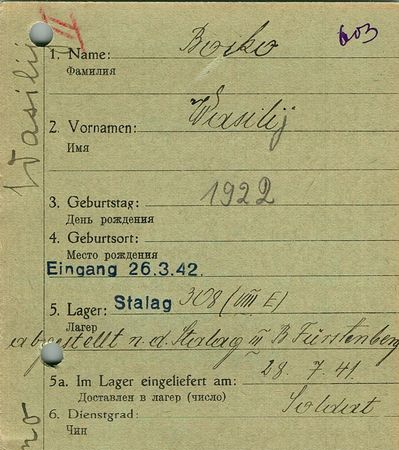 II
603
1. Name: Boiko
Фамилия
2. Vornamen: Wasilij
Имя
3. Geburtstag: 1922
День рождения
4. Geburtsort:
Место рождения
Eingang 26.3.42.
5. Lager: Stalag 308 (VIII E)
Лагер
abgestellt n. d. Stalag III B Fürstenberg
28. 7. 41.
5a. Im Lager eingeliefert am:
Доставлен в лагер (число)
6. Dienstgrad: Soldat
Чин
Wasilij